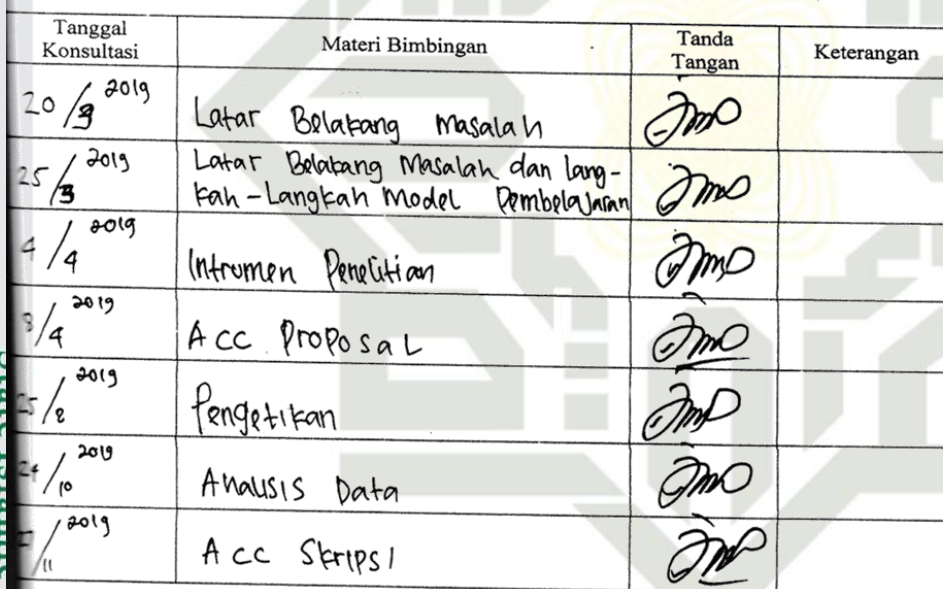 Tanggal
Konsultasi
Materi Bimbingan
Tanda
Tangan
Keterangan
20/3 2019
Latar Belakang Masalah
25/3 2019
Latar Belakang Masalah dan lang-
kah-Langkah Model Pembelajaran
4/4 2019
Intrumen Penelitian
8/4 2019
Acc Proposal
25/8 2019
Pengetikan
24/10 2019
Analisis Data
/11 2019
Acc Skripsi